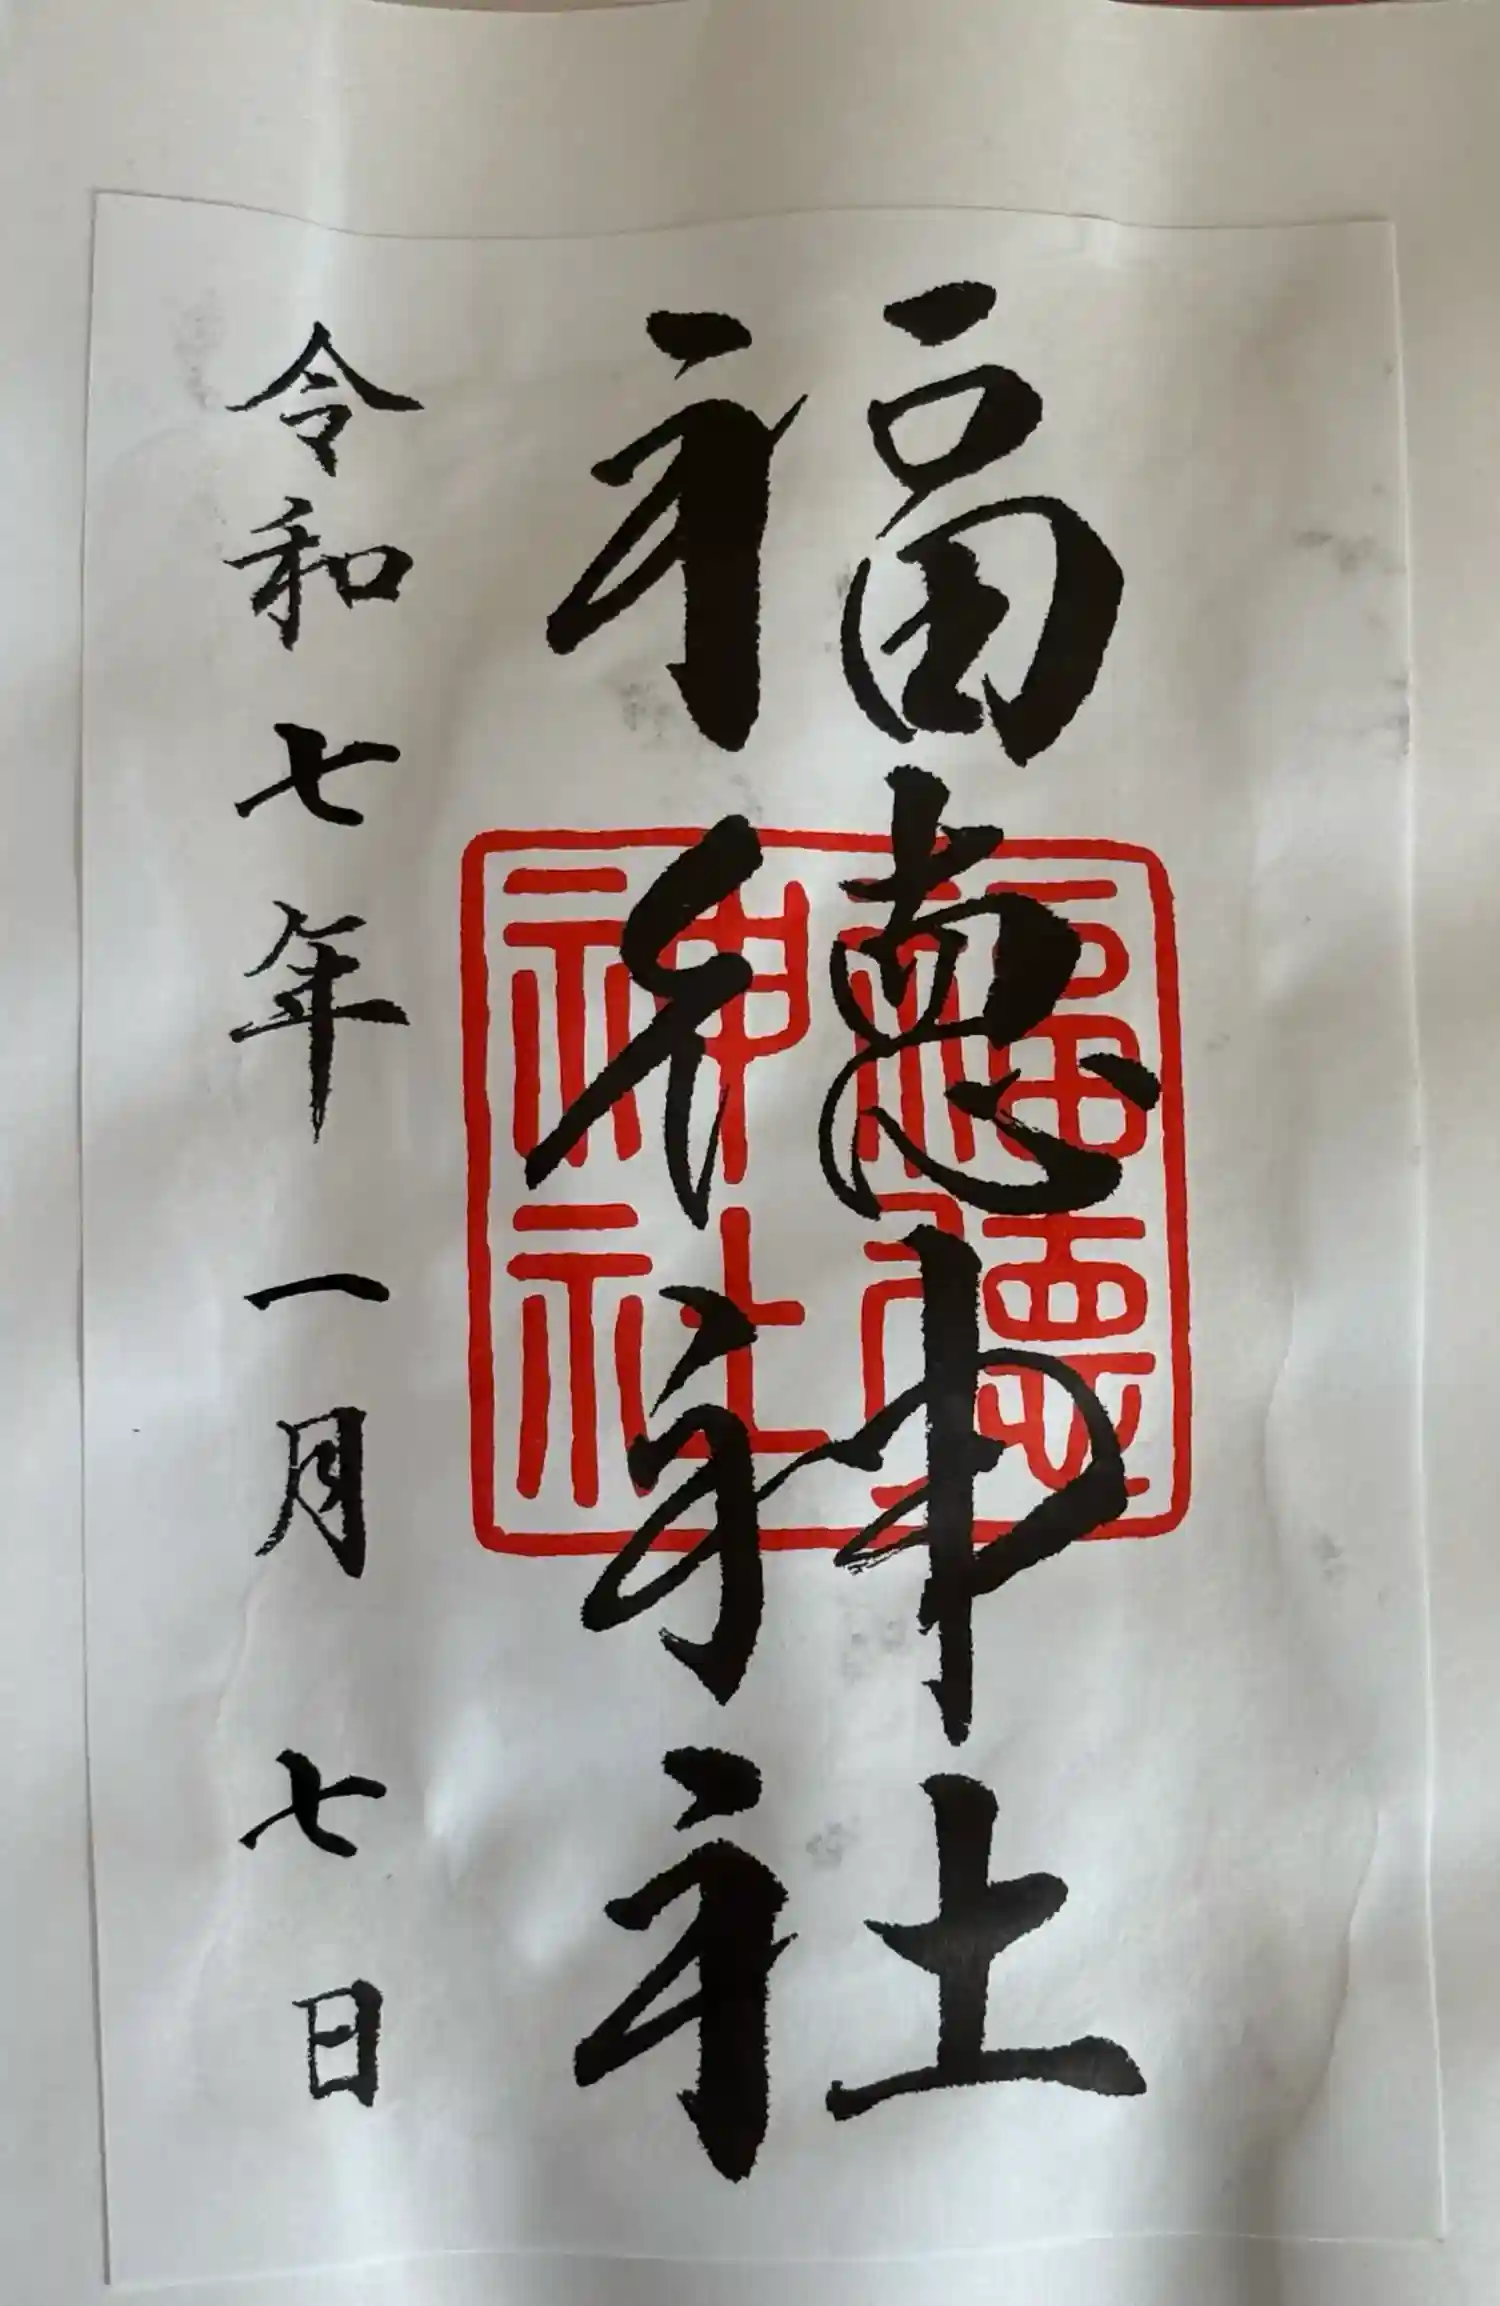 福徳神社
令和七年一月七日
福徳
神社